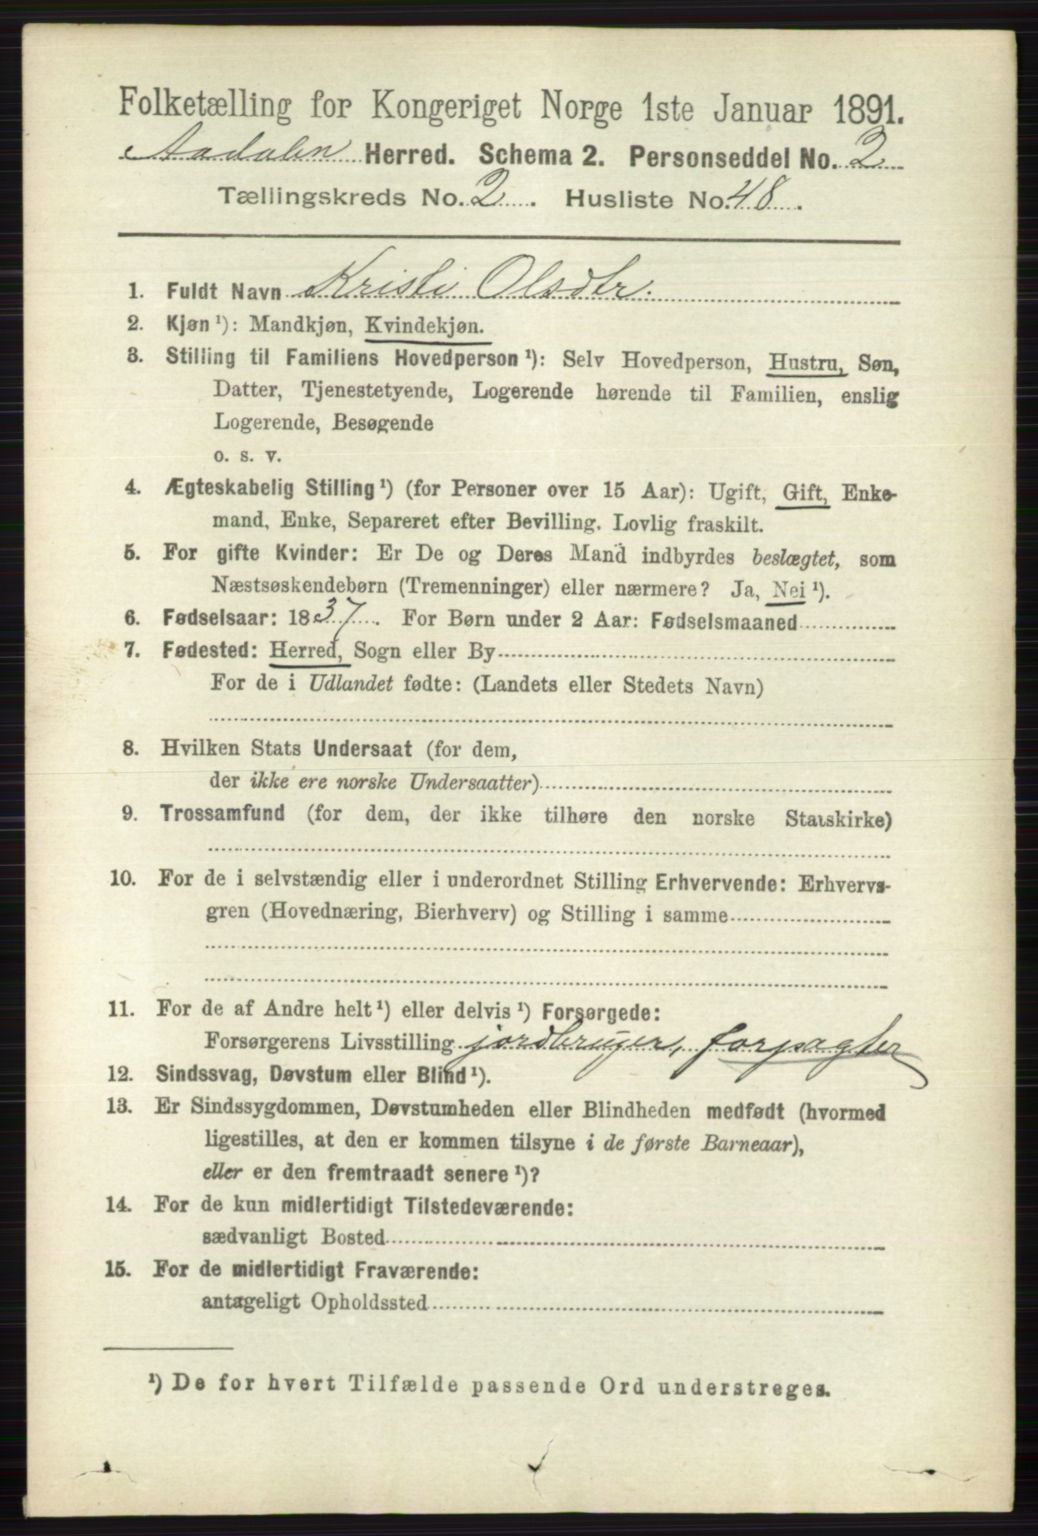 Folketælling for Kongeriget Norge 1ste Januar 1891.
Aadalen Herred. Schema 2. Personseddel No. 2
Tællingskreds No. 2. Husliste No. 48.
1. Fuldt Navn Kristi Olsdtr.
2. Kjøn¹): Mandkjøn, Kvindekjøn.
3. Stilling til Familiens Hovedperson¹): Selv Hovedperson, Hustru, Søn,
Datter, Tjenestetyende, Logerende hørende til Familien, enslig
Logerende, Besøgende
o. s. v.
4. Ægteskabelig Stilling¹) (for Personer over 15 Aar): Ugift, Gift, Enke-
mand, Enke, Separeret efter Bevilling. Lovlig fraskilt.
5. For gifte Kvinder: Er De og Deres Mand indbyrdes beslægtet, som
Næstsøskendebørn (Tremenninger) eller nærmere? Ja, Nei¹).
6. Fødselsaar: 1837. For Børn under 2 Aar: Fødselsmaaned
7. Fødested: Herred, Sogn eller By
For de i Udlandet fødte: (Landets eller Stedets Navn)
8. Hvilken Stats Undersaat (for dem,
der ikke ere norske Undersaatter)
9. Trossamfund (for dem, der ikke tilhøre den norske Statskirke)
10. For de i selvstændig eller i underordnet Stilling Erhvervende: Erhvervs-
gren (Hovednæring, Bierhverv) og Stilling i samme
11. For de af Andre helt¹) eller delvis¹) Forsørgede:
Forsørgerens Livsstilling jordbruger, forpagter
12. Sindssvag, Døvstum eller Blind¹).
13. Er Sindssygdommen, Døvstumheden eller Blindheden medfødt (hvormed
ligestilles, at den er kommen tilsyne i de første Barneaar),
eller er den fremtraadt senere¹)?
14. For de kun midlertidigt Tilstedeværende:
sædvanligt Bosted
15. For de midlertidigt Fraværende:
antageligt Opholdssted
¹) De for hvert Tilfælde passende Ord understreges.